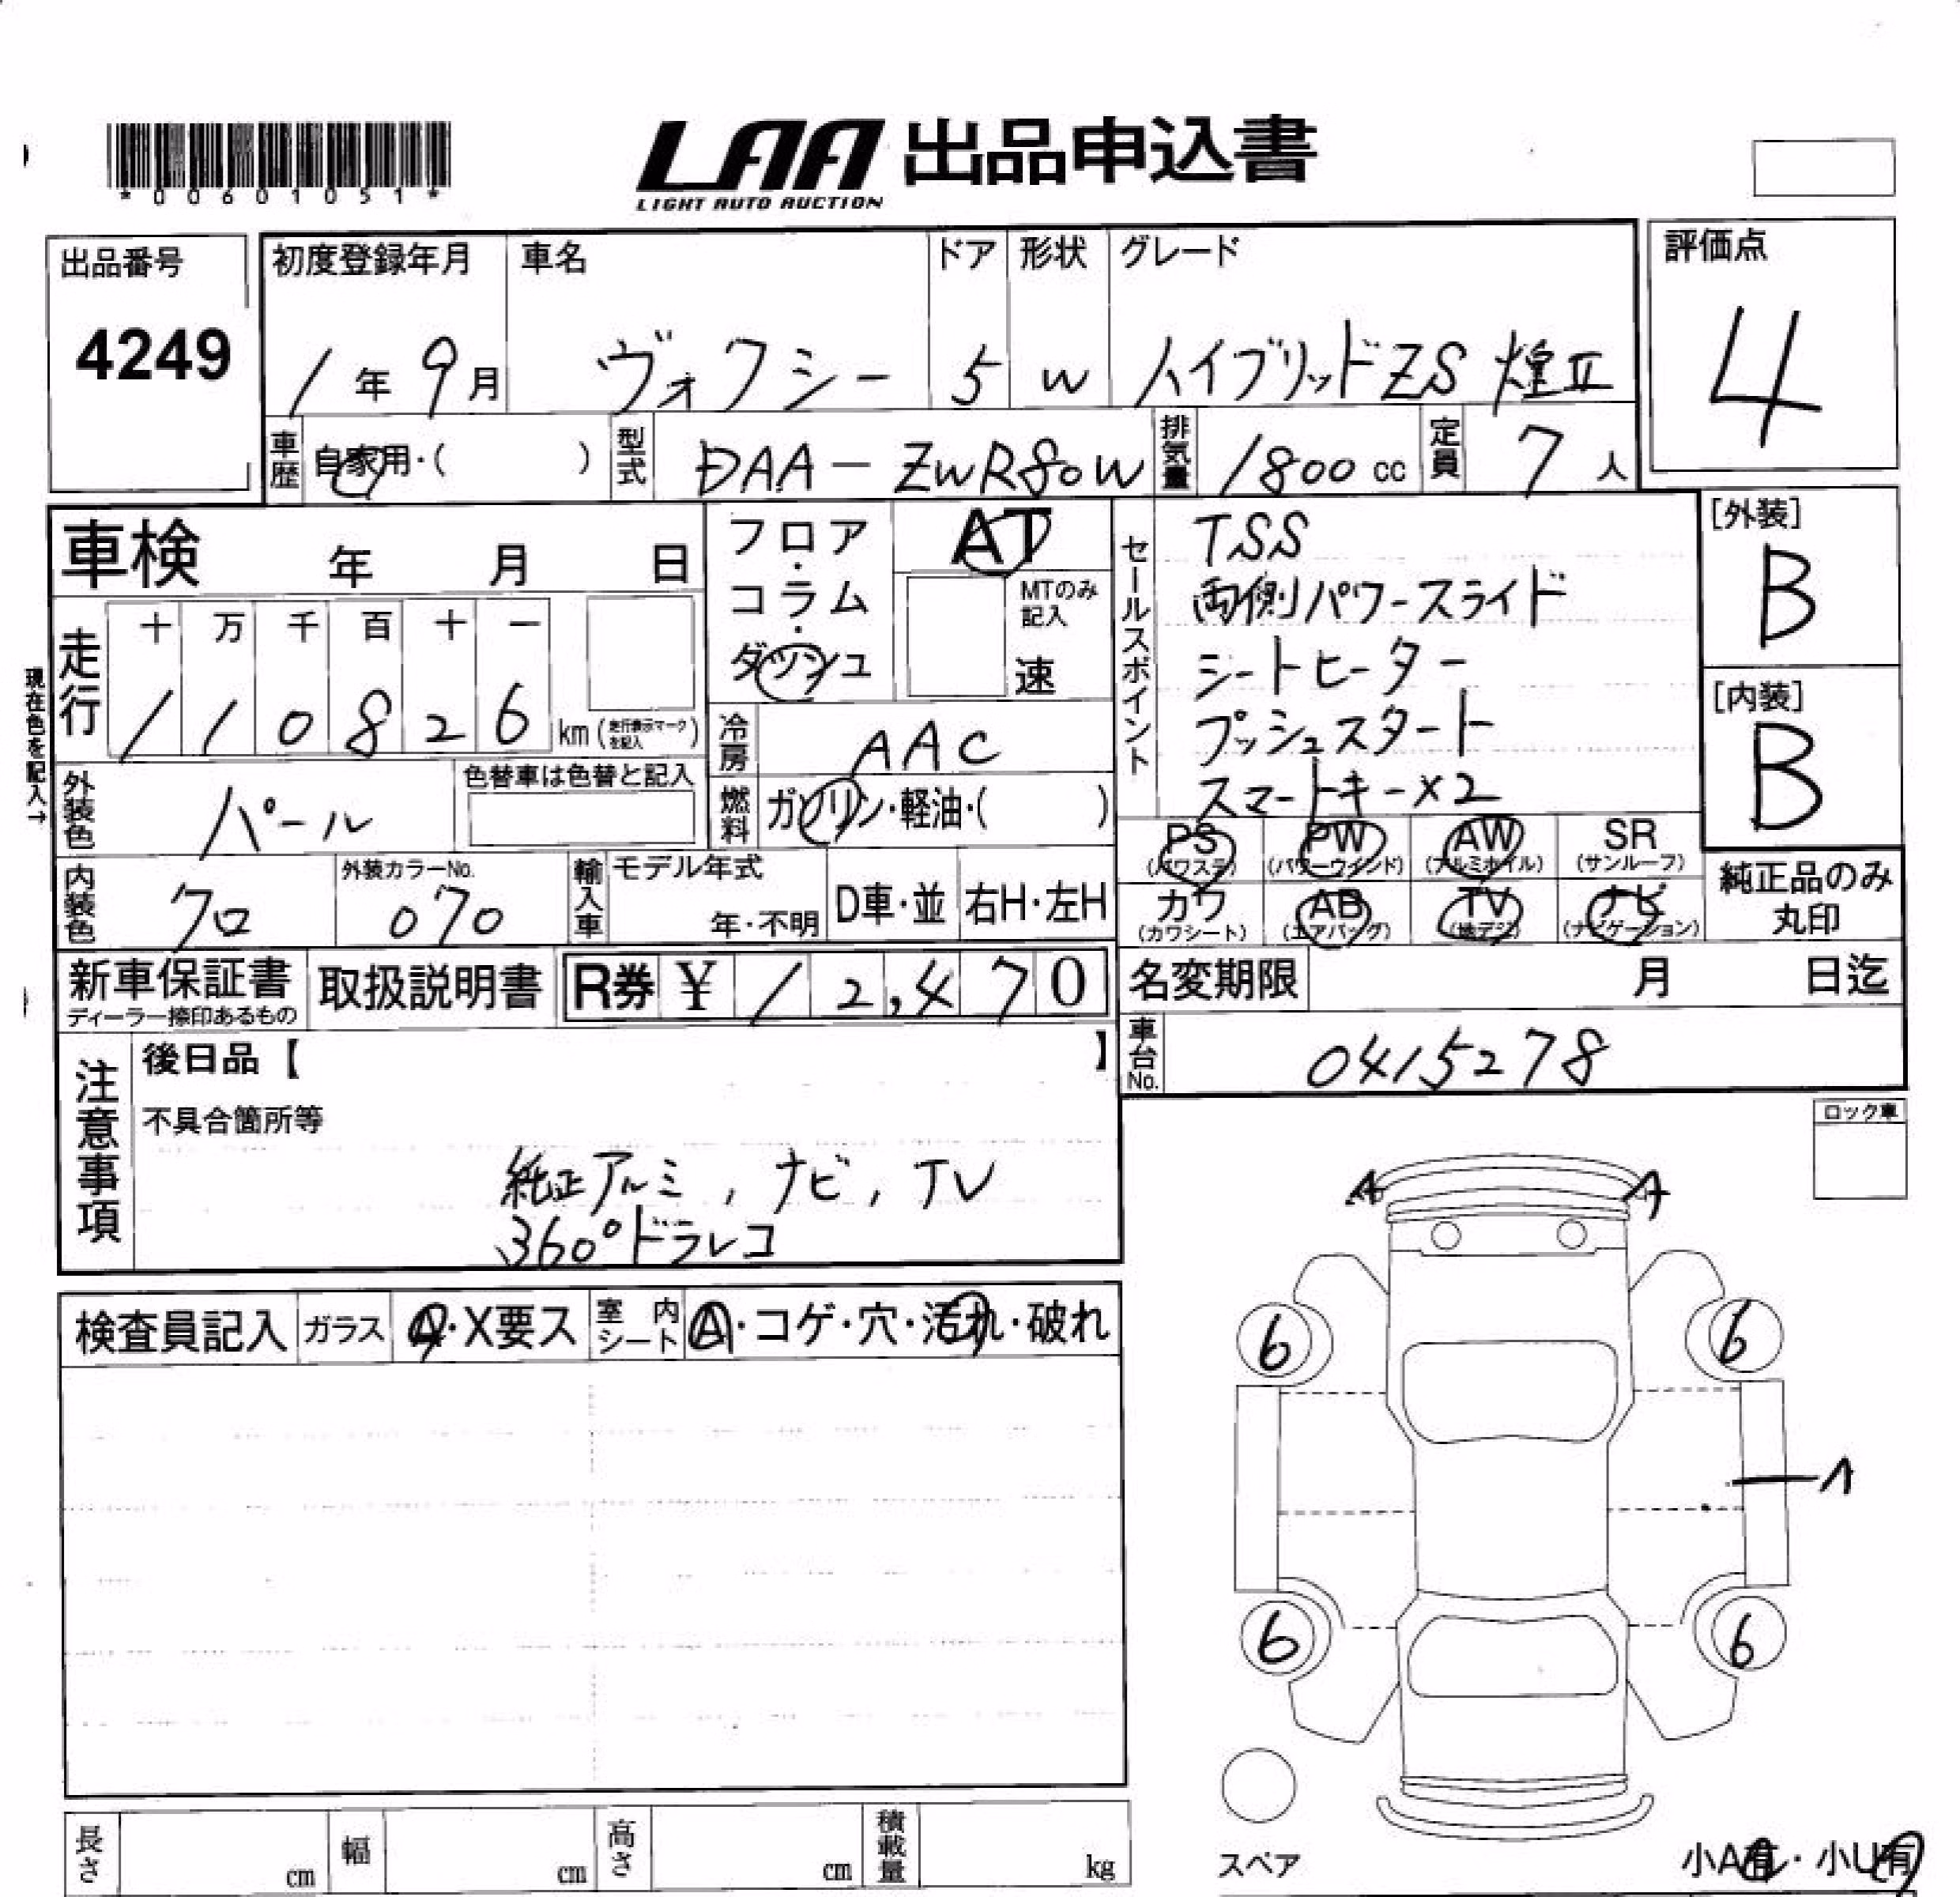 *00601051*
LAA 出品申込書
LIGHT AUTO AUCTION
出品番号
4249
初度登録年月
1年9月
車名
ヴォクシー
ドア
5
形状
W
グレード
ハイブリッドZS 煌II
評価点
4
車歴
自家用・( )
型式
DAA-ZWR80W
排気量
1800cc
定員
7人
車検 年 月 日
フロア・コラム・ダッシュ
AT
MTのみ記入
速
セールスポイント
TSS
両側パワースライド
シートヒーター
プッシュスタート
スマートキー×2
[外装]
B
[内装]
B
現在色を記入→
走行
十 万 千 百 十 一
1 1 0 8 2 6 km (走行表示マークを記入)
冷房
AAC
外装色
パール
色替車は色替と記入
燃料
ガソリン・軽油・( )
PS (パワステ)
PW (パワーウインド)
AW (アルミホイル)
SR (サンルーフ)
カワ (カワシート)
AB (エアバッグ)
TV (地デジ)
ナビ (ナビゲーション)
純正品のみ丸印
内装色
クロ
外装カラーNo.
070
輸入車
モデル年式
年・不明
D車・並
右H・左H
新車保証書
ディーラー捺印あるもの
取扱説明書
R券 ¥ 12,470
名変期限 月 日迄
車台No.
0415278
注意事項
後日品【 】
不具合箇所等
純正アルミ, ナビ, TV
360°ドラレコ
ロック車
A A
6 6
1
6 6
スペア
小A有・小U有
検査員記入
ガラス
A・X要ス
室内シート
A・コゲ・穴・汚れ・破れ
長さ cm
幅 cm
高さ cm
積載量 kg